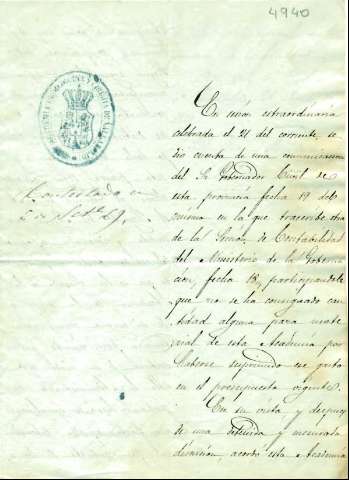 4940
En sesion extraordinaria
celebrada el 24 del corriente, se
dio cuenta de una comunicacion
del Sr Gobernador Civil de
esta provincia fecha 19 del
mismo en la que trascribe otra
de la Seccion de Contabilidad
del Ministerio de la Goberna
cion, fecha 18, participandole
que no se ha consignado can
tidad alguna para mate
rial de esta Academia por
haberse suprimido ese gasto
en el presupuesto vigente.
En su vista y despues
de una detenida y mesurada
discusion, acordó esta Academia
Contestada en